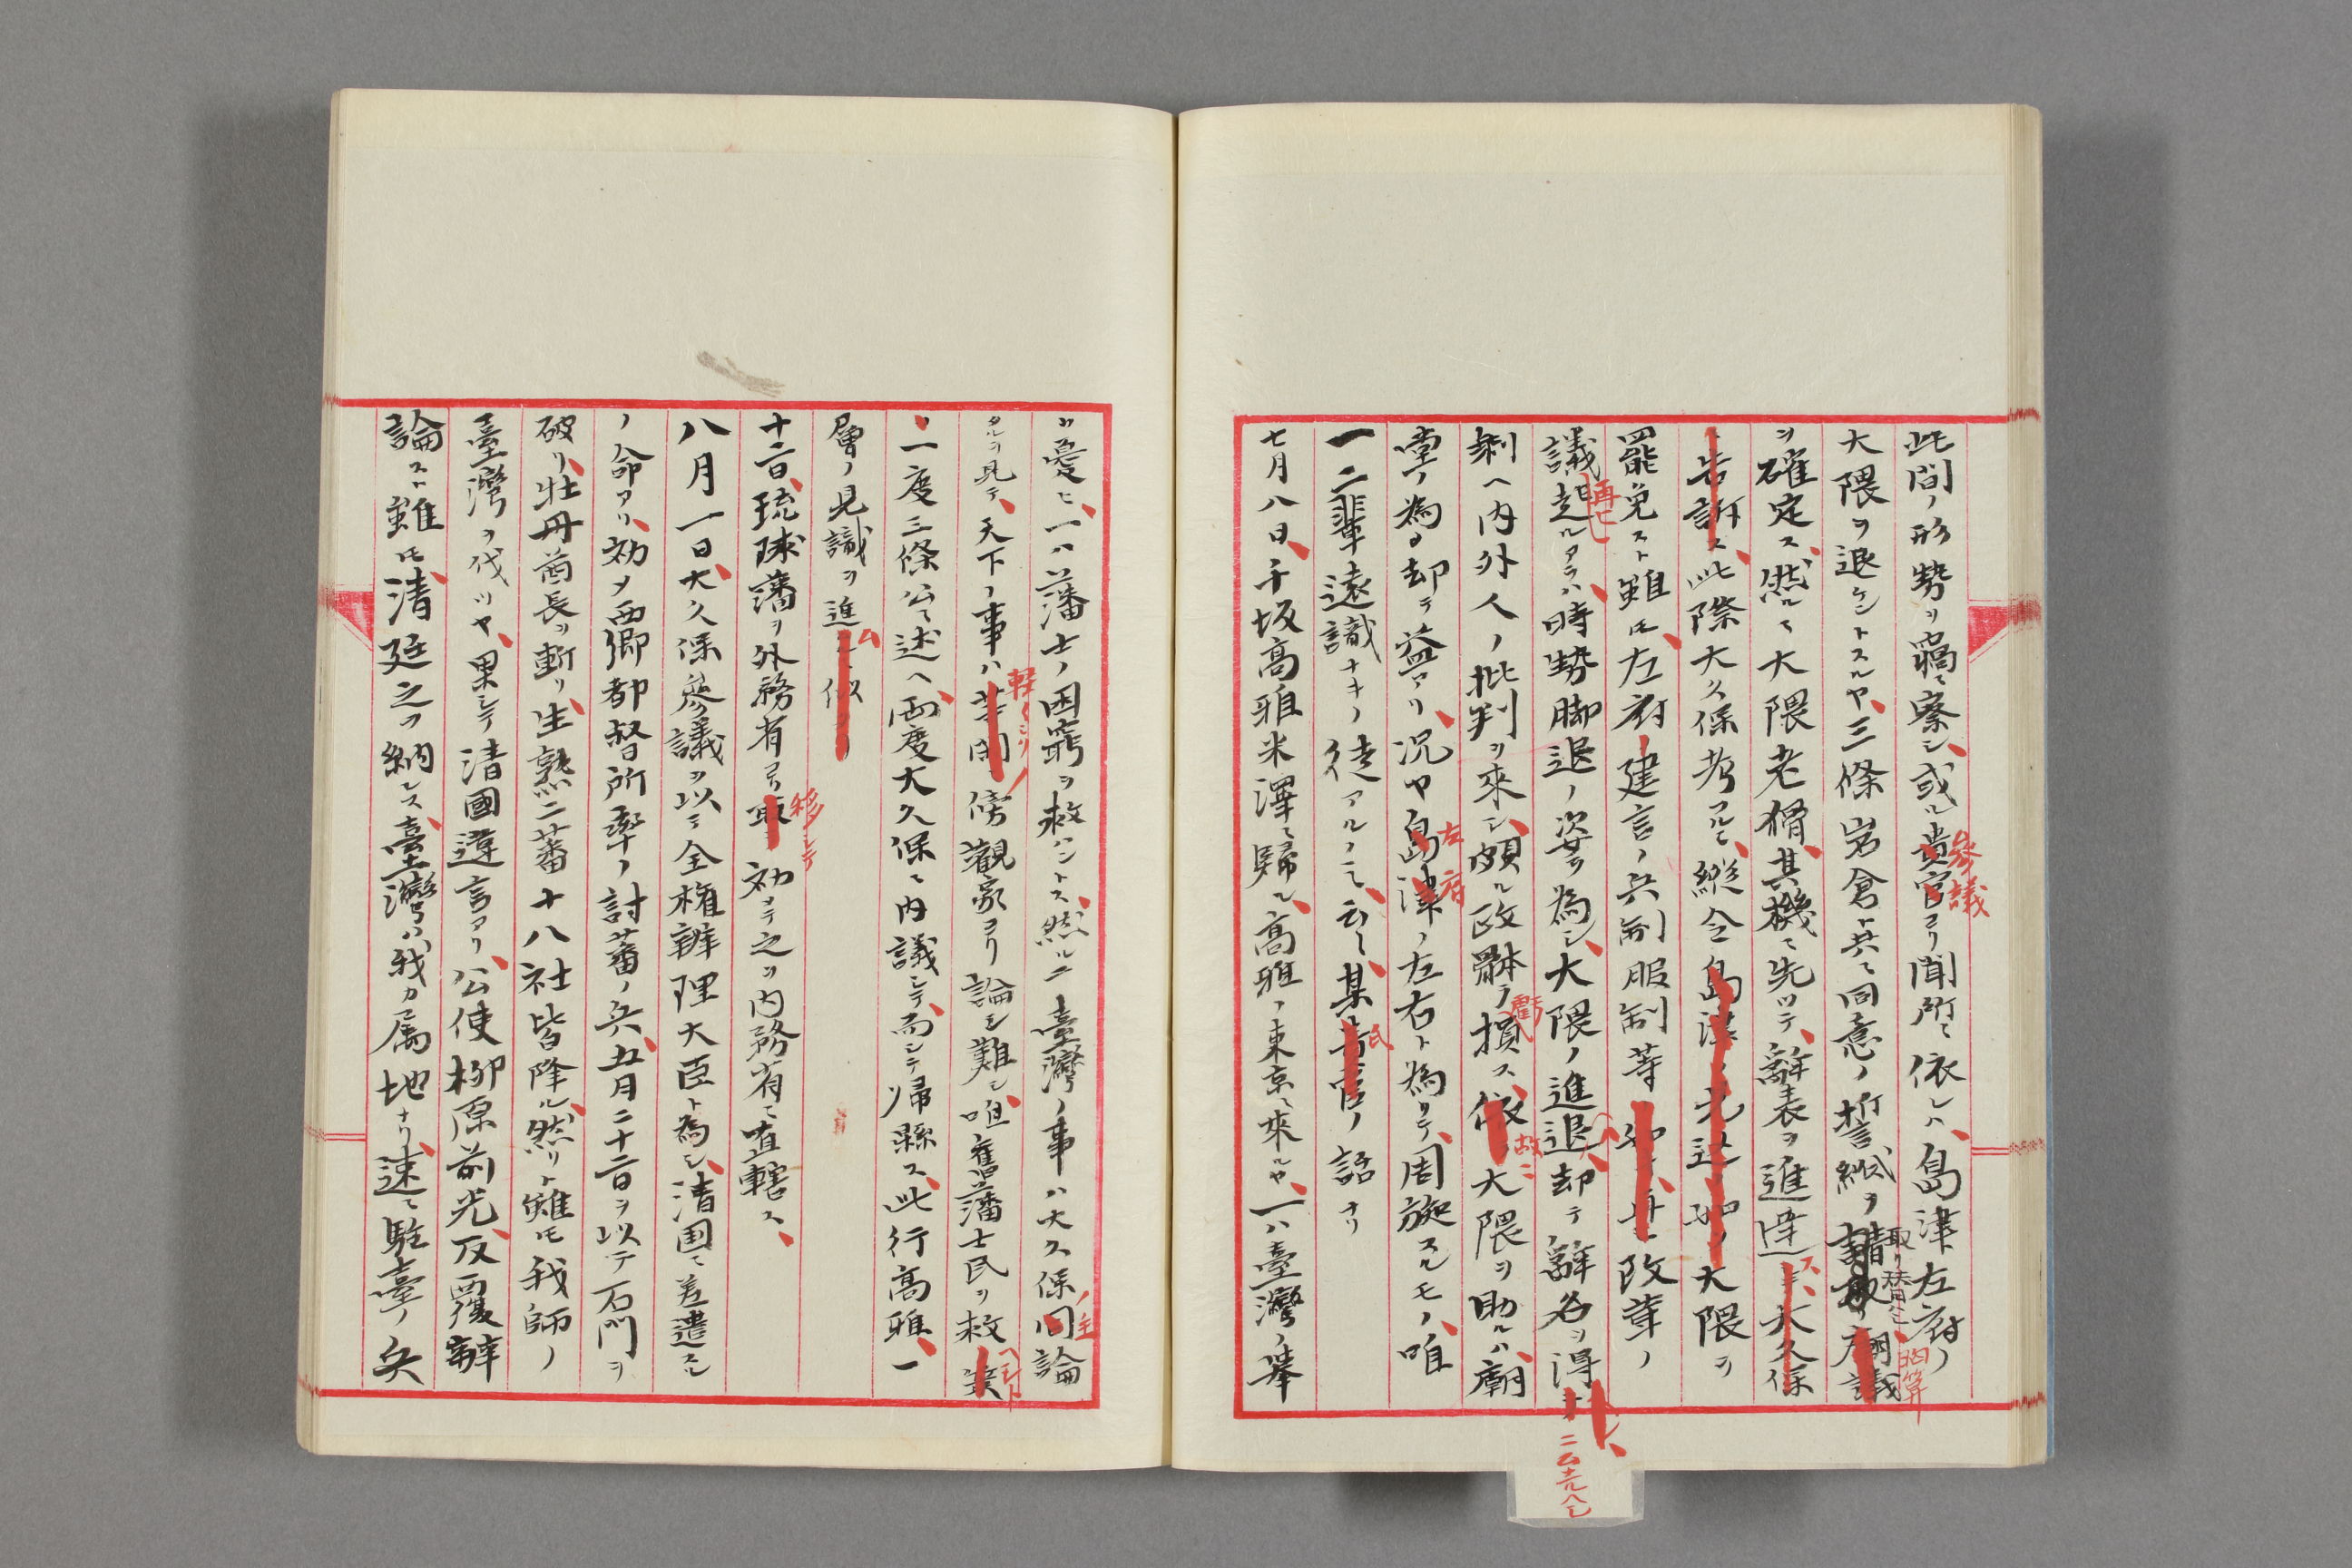 此間ノ形勢ヲ竊ニ察シ、或ル貴官ヨリ聞所ニ依レハ、島津左府ノ
參議
大隈ヲ退ケントスルヤ、三條岩倉ト共ニ同意ノ誓紙ヲ
取リ替ハシ、
胸算
ヲ確定ス、然ルニ大隈老獪、其機ニ先ツテ、辭表ヲ進達シ、大久保
ス、
告訴ス、此際大久保考フルニ、縱令島津ノ
大隈ヲ
罷免スト雖モ、左府建言ノ兵制服制等
改革ノ
議起ルアラハ、時勢脚退ノ姿ヲ為シ、大隈ノ進退却テ辭名ヲ得
再ヒ
剰ヘ内外人ノ批判ヲ來シ、頗ル政體ヲ損ス、依テ大隈ヲ助ルハ、廟
虧
故ニ
堂ノ為メ却テ益アリ、況ヤ島津ノ左右ト為リテ、周旋スルモノ、唯
左府
一二輩遠識ナキノ徒アルノミ、云々、某貴官ノ話ナリ
氏
七月八日、千坂高雅米澤ニ歸ル、高雅ノ東京ニ來ルヤ、一ハ臺灣ノ舉
ヲ憂ヒ、一ハ藩士ノ困窮ヲ救ハントス、然ルニ臺灣ノ事ハ大久保同論
ノ主
タルヲ見テ、天下ノ事ハ
傍觀家ヨリ論シ難シ、唯舊藩士民ヲ救
ハント
一度三條公ニ述ヘ、両度大久保ニ内議シテ、而シテ帰縣ス、此行高雅、一
層ノ見識ヲ進ルニ似タリ
ム
十二日、琉球藩ヲ外務省ヨリ
効テ之ヲ内務省ニ直轄ス、
移シテ
八月一日、大久保參議ヲ以テ全権辨理大臣ト為シ、清国ニ差遣スル
ノ命アリ、効メ西郷都督所率ノ討蕃ノ兵、五月二十二日ヲ以テ石門ヲ
破リ、牡丹酋長ヲ斬リ、生熟二蕃十八社皆降ル、然リト雖モ我師ノ
臺灣ヲ伐ツヤ、果シテ清國違言アリ、公使柳原前光、反覆辨
論スト雖モ、清廷之ヲ納レス、臺灣ハ我カ属地ナリ、速ニ駐臺ノ兵